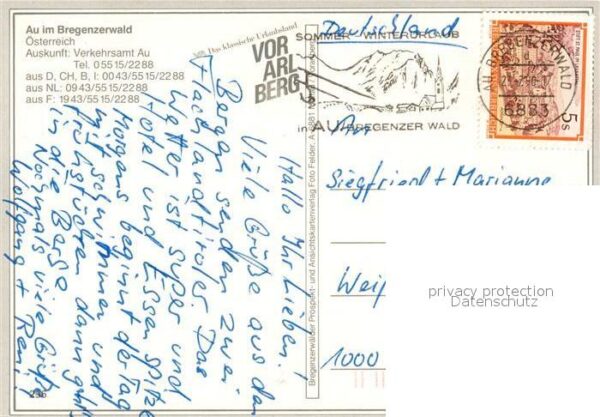 Au im Bregenzerwald
Österreich
Auskunft: Verkehrsamt Au
Tel. 05515/2288
aus D, CH, B, I: 0043/5515/2288
aus NL: 0943/5515/2288
aus F: 1943/5515/2288
Das klassische Urlaubsland
VOR
ARL
BERG
Hallo Ihr Lieben!
Viele Grüße aus den
Bergen senden zwei
Flachlandtiroler. Das
Wetter ist super und
Hotel und Essen spitze
Morgens beginnt der Tag
mit schwimmen und
frühstücken dann geht's
in die Berge
Nochmals viele Grüße
Wolfgang + Reni
236
Bregenzerwälder Prospekt- und Ansichtskartenverlag Foto Felder, A-6881
Deutschland
SOMMER WINTERURLAUB
in AU BREGENZER WALD
AU BREGENZERWALD
6883
5 S
An
Siegfried + Marianne
1000
privacy protection
Datenschutz